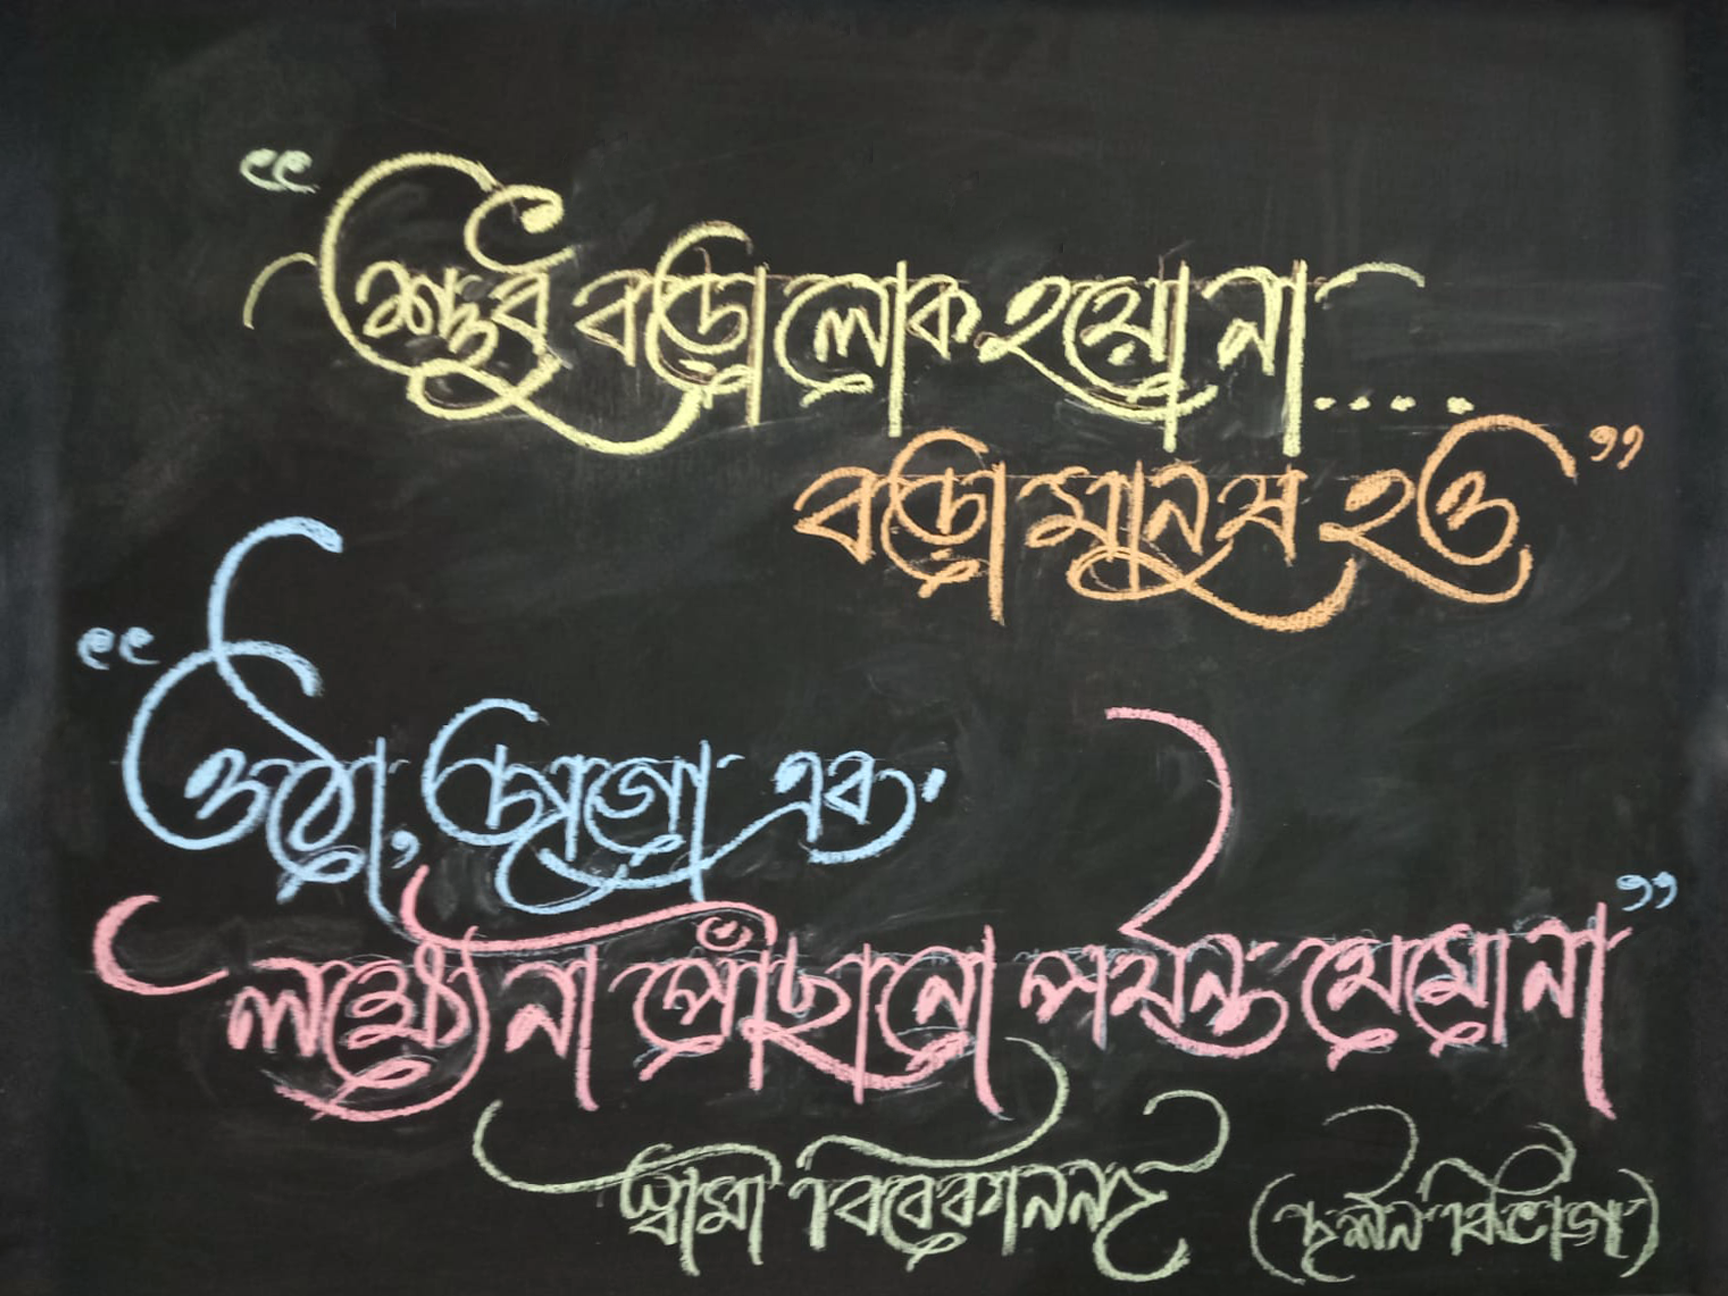 “শুধু বড়ো লোক হয়ো না....
বড়ো মানুষ হও”
“ওঠো, জাগো এবং
লক্ষ্যে না পৌঁছানো পর্যন্ত থেমো না”
স্বামী বিবেকানন্দ (দর্শন বিভাগ)